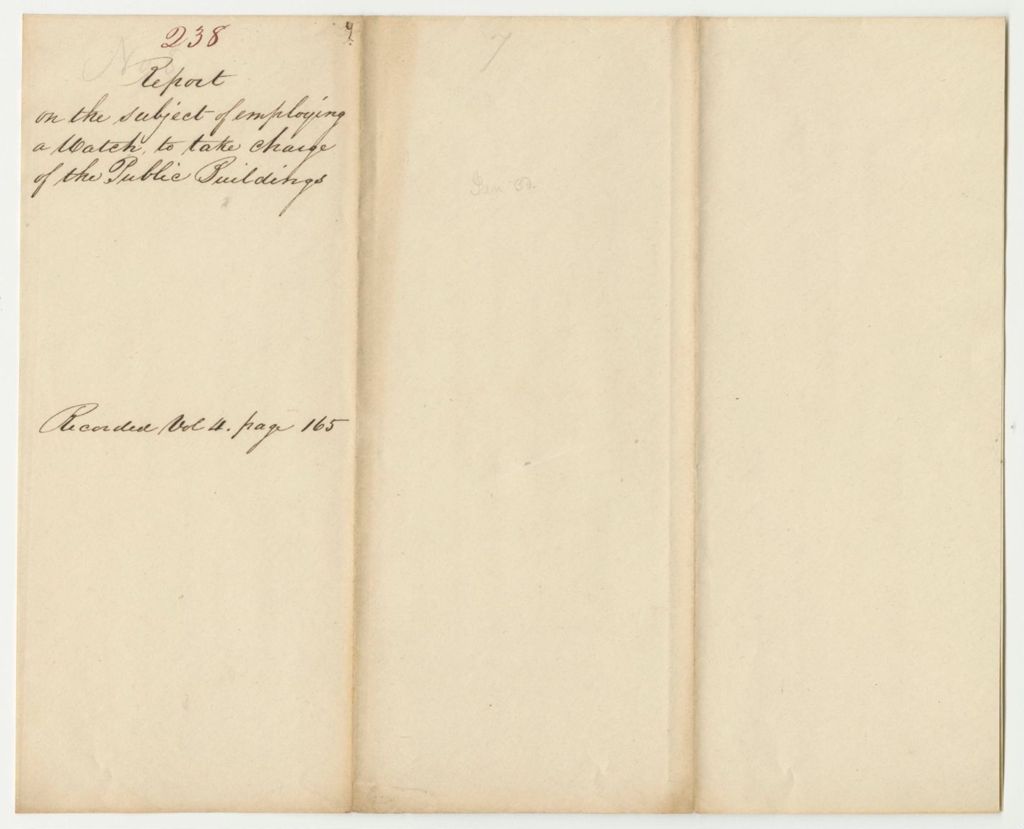 238
Report
on the subject of employing
a Watch, to take charge
of the Public Buildings
Recorded Vol 4. page 165
7